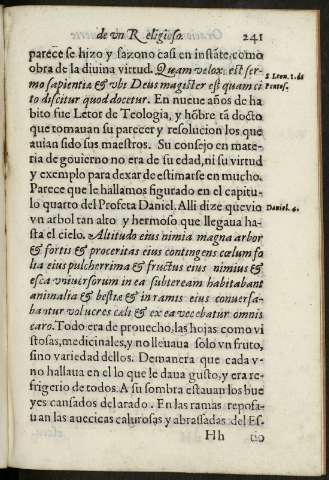 de vn Religioso. 241
parece se hizo y sazono casi en instãte, como
obra de la diuina virtud. Quam velox est ser-
mo sapientiæ & vbi Deus magister est quam ci
to discitur quod docetur. En nueue años de ha
bito fue Letor de Teologia, y hõbre tã docto
que tomauan su parecer y resolucion los que
auian sido sus maestros. Su consejo en mate-
ria de gouierno no era de su edad, ni su virtud
y exemplo para dexar de estimarse en mucho.
Parece que le hallamos figurado en el capitu-
lo quarto del Profeta Daniel. Alli dize que vio
vn arbol tan alto y hermoso que llegaua ha-
sta el cielo. Altitudo eius nimia magna arbor
& fortis & proceritas eius contingens cœlum fo
lia eius pulcherrima & fructus eius nimius &
esca vniuersorum in ea subter eam habitabant
animalia & bestiæ & in ramis eius conuersa-
bantur volucres cœli & ex ea vescebatur omnis
caro. Todo era de prouecho, las hojas como vi
stosas, medicinales, y no lleuaua solo vn fruto,
sino variedad dellos. De manera que cada v-
no hallaua en el lo que le daua gusto, y era re-
frigerio de todos. A su sombra estauan los bue
yes cansados del arado. En las ramas reposa-
uan las auecicas calurosas y abrassadas del Es-
Hh
S. Leon. 1. de
Pentos.
Daniel. 4.